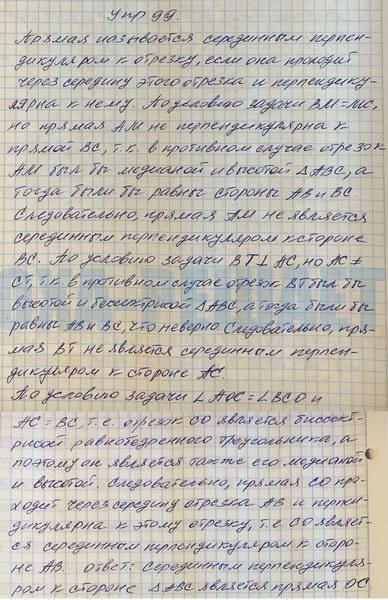 Упр 99.
Прямая называется серединным перпен-
дикуляром к отрезку, если она проходит
через середину этого отрезка и перпендику-
лярна к нему. По условию задачи BM=MC,
но прямая AM не перпендикулярна к
прямой BC, т.к. в противном случае отрезок
AM был бы медианой и высотой △ABC, а
тогда были бы равны стороны AB и BC
Следовательно, прямая AM не является
серединным перпендикуляром к стороне
BC. По условию задачи BT⊥AC, но AC≠
CT, т.к в противном случае отрезок BT был бы
высотой и бессектрисой △ABC, а тогда были бы
равны AB и BC, что неверно Следовательно, пря-
мая BT не является серединным перпен-
дикуляром к стороне AC
По условию задачи ∠AOC=∠BCO и
AC=BC, т.е. отрезок CO явается биссект-
рисой равнобедренного треугольника, а
поэтому он является также его медианой
и высотой, следовательно, прямая CO про-
ходит через середину отрезка AB и перпен-
дикулярна к этому отрезку, т.е CO являет-
ся серединным перпендикуляром к сторо-
не AB. ответ: серединным перпендикуля-
ром к стороне △ABC является прямая OC